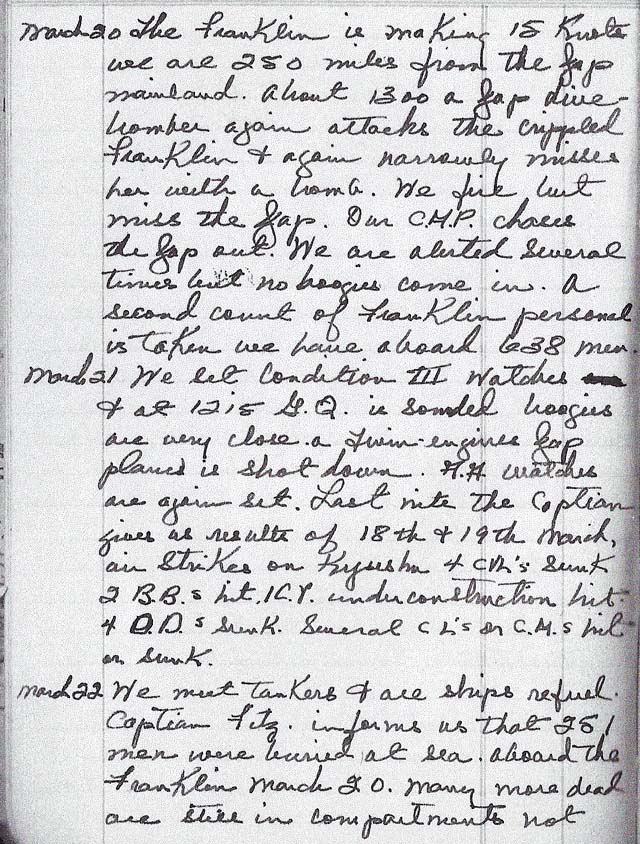 March 20 The Franklin is making 15 Knots
we are 250 miles from the Jap
mainland. About 1300 a Jap dive-
bomber again attacks the crippled
Franklin & again narrowly misses
her with a bomb. We fire but
miss the Jap. Our C.A.P. chases
the Jap out. We are alerted several
times but no boogies come in. A
second count of Franklin personal
is taken we have aboard 638 men.
March 21 We set Condition III Watches
& at 1215 G.Q. is sonded boogies
are very close. a twin-engines Jap
planes is shot down. watches
are again set. Last nite the Coptian
gives us results of 18th & 19th March,
air strikes on Kyushu 4 sunk
2 B.B.s hit, 1 C.V. underconstruction hit.
4 D.D.s sunk. Several C L's or C.A.s hit
or sunk.
March 22 We meet tankers & all ships refuel.
Coptian Fitz. informs us that 251
men were buried at sea. aboard the
Franklin March 20. Many more dead
are still in compartments not